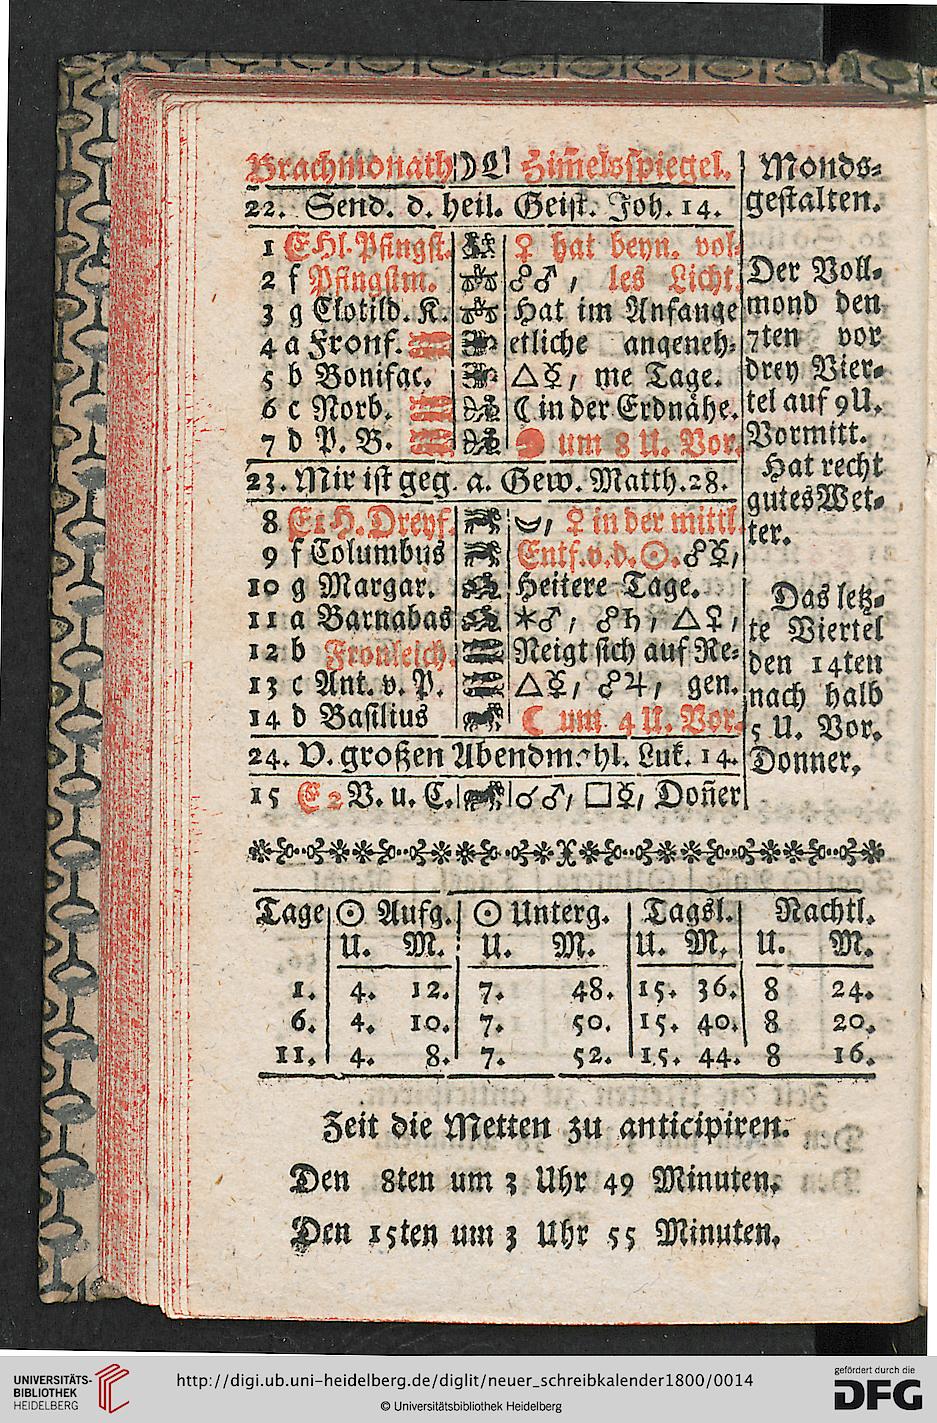 Brachmonath ☽ L Him̃elsspiegel.
22. Send. d. heil. Geist. Joh. 14.
1 E Hl. Pfingst. ♀ hat beyn. vol-
2 f Pfingstm. ☍♂, les Licht.
3 g Clotild. K. Hat im Anfange
4 a Fronf. etliche angeneh-
5 b Bonifac. △☿, me Tage.
6 c Norb. ☾ in der Erdnähe.
7 d P. B. um 8 U. Vor.
23. Mir ist geg. a. Gew. Matth. 28.
8 E 1 H. Dreyf. ♀ in der mittl.
9 f Columbus Entf. v. d. ☉. ☍☿,
10 g Margar. Heitere Tage.
11 a Barnabas ⚹♂, ☍♄, △♀,
12 b Fronleich. Neigt sich auf Re-
13 c Ant. v. P. △☿, ☍♃, gen.
14 d Basilius ☾ um 4 U. Vor.
24. V. großen Abendmahl. Luk. 14.
15 E 2 V. u. C. ☌♂, □☿, Doñer
Monds-
gestalten.
Der Voll-
mond den
7ten vor
drey Vier-
tel auf 9 U.
Vormitt.
Hat recht
gutes Wet-
ter.
Das letz-
te Viertel
den 14ten
nach halb
5 U. Vor.
Donner.
Tage ☉ Aufg. ☉ Unterg. Tagsl. Nachtl.
U. M. U. M. U. M. U. M.
1. 4. 12. 7. 48. 15. 36. 8 24.
6. 4. 10. 7. 50. 15. 40. 8 20.
11. 4. 8. 7. 52. 15. 44. 8 16.
Zeit die Metten zu anticipiren.
Den 8ten um 3 Uhr 49 Minuten.
Den 15ten um 3 Uhr 55 Minuten.
UNIVERSITÄTS-
BIBLIOTHEK
HEIDELBERG
http://digi.ub.uni-heidelberg.de/diglit/neuer_schreibkalender1800/0014
© Universitätsbibliothek Heidelberg
gefördert durch die
DFG